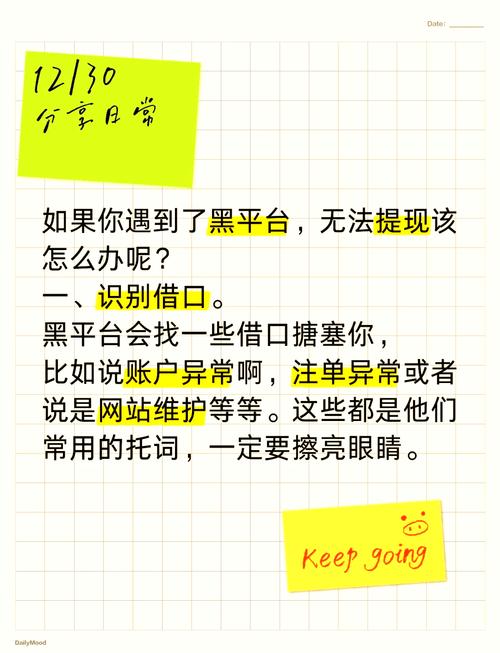 Date:
12/30
分享日常
如果你遇到了黑平台，无法提现该
怎么办呢？
一、识别借口。
黑平台会找一些借口搪塞你，
比如说账户异常啊，注单异常或者
说是网站维护等等。这些都是他们
常用的托词，一定要擦亮眼睛。
Keep going
DailyMood